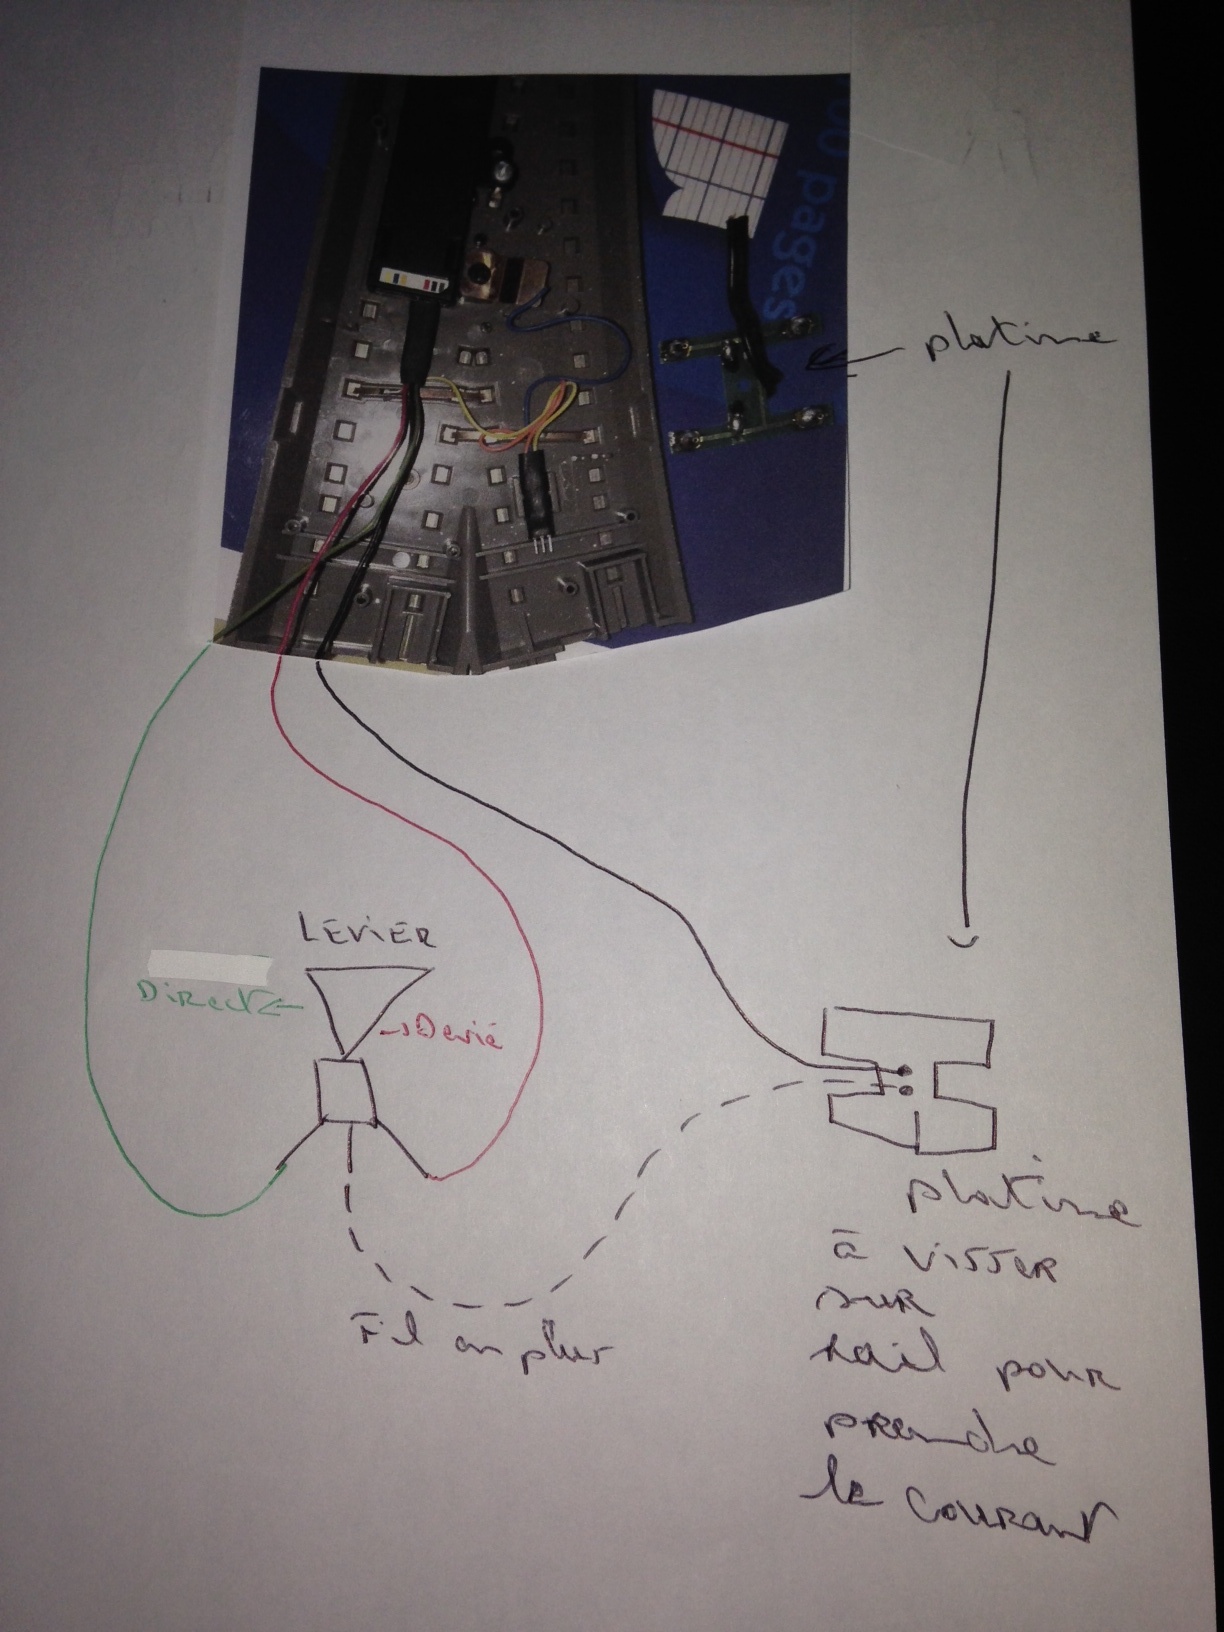 00 pages
platine
LEVIER
Direct
Devié
Fil en plus
platine
à visser
sur
rail pour
prendre
le courant